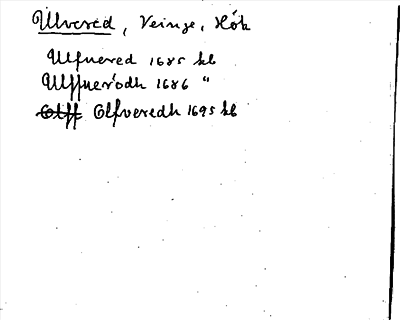 Ulvered, Veinge, Hök
Ulfuered 1685 kb
Ulffuerodh 1686 "
Olff Olfveredh 1695 kb